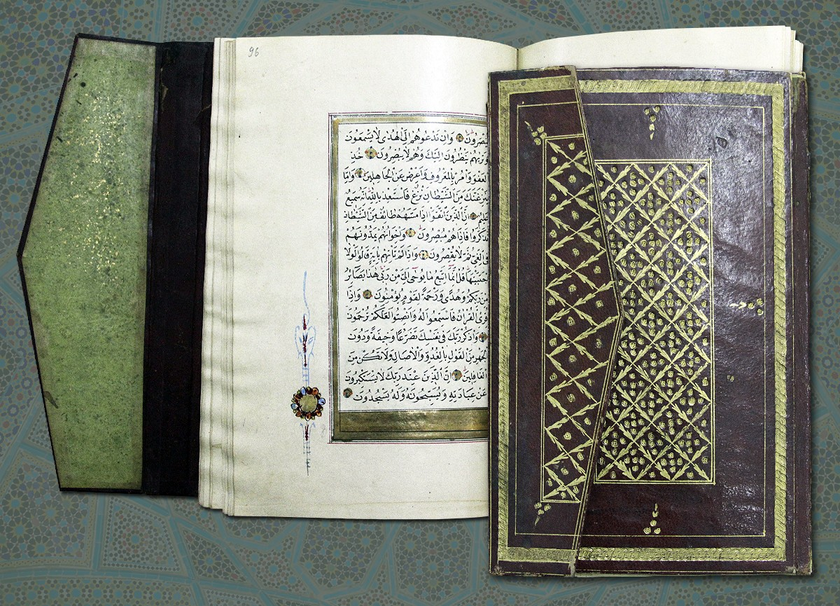 96
وَاِنْ تَدْعُوهُمْ اِلَى الْهُدٰى لَا يَسْمَعُوا
يَنْظُرُونَ اِلَيْكَ وَهُمْ لَا يُبْصِرُونَ خُذِ
الْعَفْوَ وَأْمُرْ بِالْعُرْفِ وَاَعْرِضْ عَنِ الْجَاهِلِينَ وَاِمَّا
مِنَ الشَّيْطَانِ نَزْغٌ فَاسْتَعِذْ بِاللهِ اِنَّهُ سَمِيعٌ
اِنَّ الَّذِينَ اتَّقَوْا اِذَا مَسَّهُمْ طَائِفٌ مِنَ الشَّيْطَانِ
تَذَكَّرُوا فَاِذَا هُمْ مُبْصِرُونَ وَاِخْوَانُهُمْ يَمُدُّونَهُمْ
فِي الْغَيِّ ثُمَّ لَا يُقْصِرُونَ وَاِذَا لَمْ تَأْتِهِمْ بِاٰيَةٍ قَالُوا لَوْلَا
اجْتَبَيْتَهَا قُلْ اِنَّمَا اَتَّبِعُ مَا يُوحٰى اِلَيَّ مِنْ رَبِّي هٰذَا بَصَائِرُ
مِنْ رَبِّكُمْ وَهُدًى وَرَحْمَةٌ لِقَوْمٍ يُؤْمِنُونَ وَاِذَا
قُرِئَ الْقُرْاٰنُ فَاسْتَمِعُوا لَهُ وَاَنْصِتُوا لَعَلَّكُمْ تُرْحَمُونَ
وَاذْكُرْ رَبَّكَ فِي نَفْسِكَ تَضَرُّعًا وَخِيفَةً وَدُونَ
الْجَهْرِ مِنَ الْقَوْلِ بِالْغُدُوِّ وَالْاٰصَالِ وَلَا تَكُنْ مِنَ
الْغَافِلِينَ اِنَّ الَّذِينَ عِنْدَ رَبِّكَ لَا يَسْتَكْبِرُونَ
عَنْ عِبَادَتِهِ وَيُسَبِّحُونَهُ وَلَهُ يَسْجُدُونَ